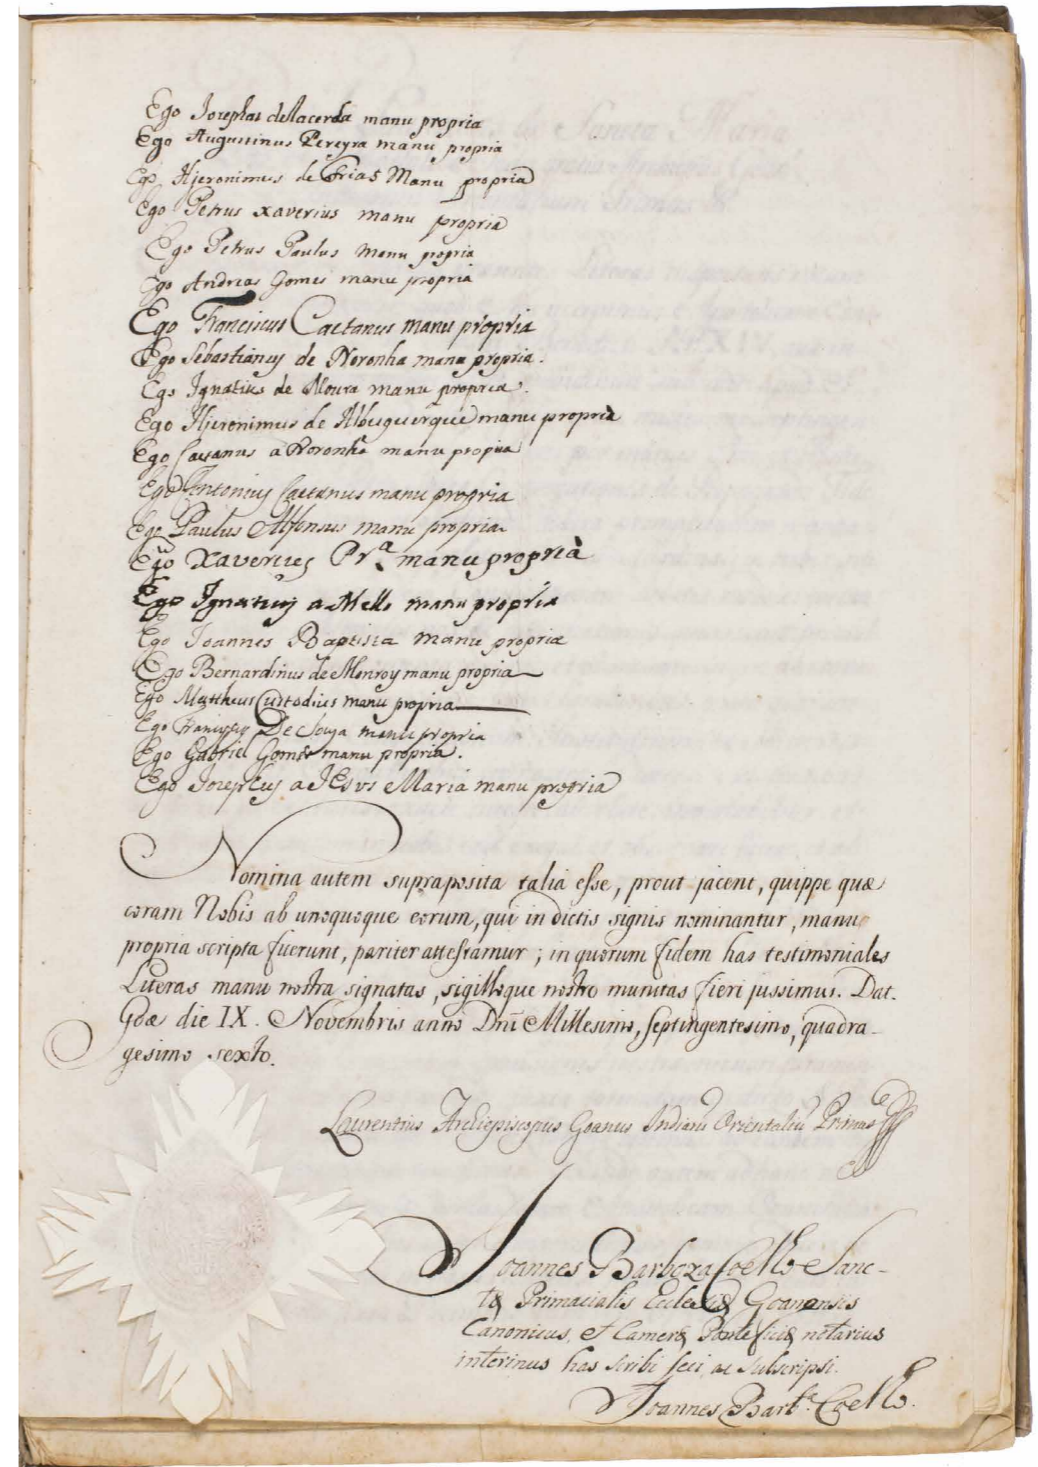 Ego Josephus de Lacerda manu propria
Ego Augustinus Pereyra manu propria
Ego Hjeronimus de Frias Manu propria
Ego Petrus xaverius manu propria
Ego Petrus Paulus manu propria
Ego Andreas Gomes manu propria
Ego Franciscus Caetanus manu propria
Ego Sebastianus de Noronha manu propria.
Ego Ignatius de Moura manu propria.
Ego Hjeronimus de Albuquerque manu propria
Ego Caetanus a Noronha manu propria
Ego Antonius Caetanus manu propria
Ego Paulus Alfonsus manu propria
Ego Xaverius Prª manu proprià
Ego Ignatius a Mello manu propria
Ego Joannes Baptista manu propria
Ego Bernardinus de Monroy manu propria
Ego Mattheus Custodius manu propria
Ego Franciscus De Souza manu propria
Ego Gabriel Gomes manu propria.
Ego Josephus a JEsus Maria manu propria
Nomina autem supraposita talia esse, prout jacent, quippe quæ
coram Nobis ab unoquoque eorum, qui in dictis signis nominantur, manu
propria scripta fuerunt, pariter attestamur; in quorum fidem has testimoniales
Literas manu nostra signatas, sigilloque nostro munitas fieri jussimus. Dat.
Goæ die IX. Novembris anno Dñi Millesimo, septingentesimo, quadra-
gesimo sexto.
Laurentius Archiepiscopus Goanus Indiarũ Orientaliũ Primas
Joannes Barboza Coelho Sanc-
tæ Primacialis Ecclesiæ Goanensis
Canonicus, et Cameræ Pontificiæ notarius
interinus has scribi feci, ac subscripsi.
Joannes Barbª. Coelho.